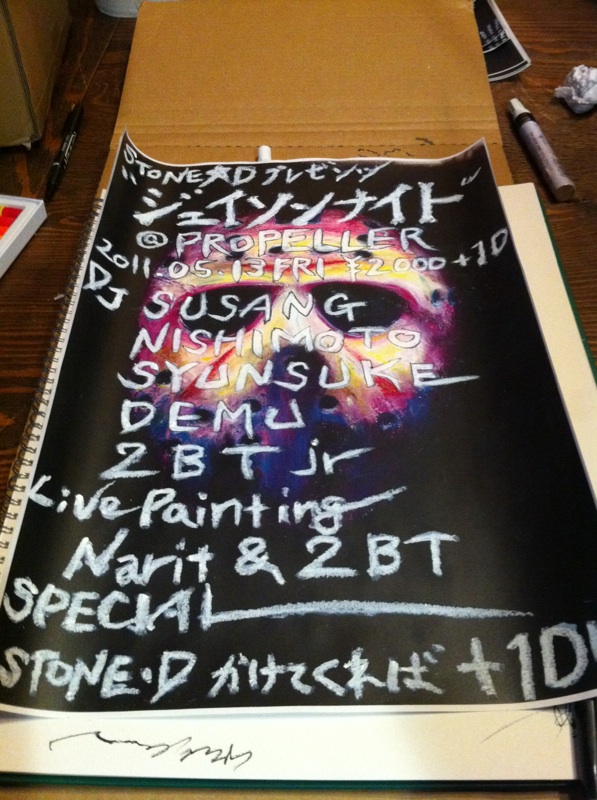 STONE★D プレゼンツ
"ジェイソンナイト"
@ PROPELLER
2011.05.13 FRI ¥2000 +1D
DJ SUSANG
NISHIMOTO
SYUNSUKE
DEMU
2BT jr
Live Painting
Narit & 2BT
SPECIAL
STONE・D かけてくれば +1D!